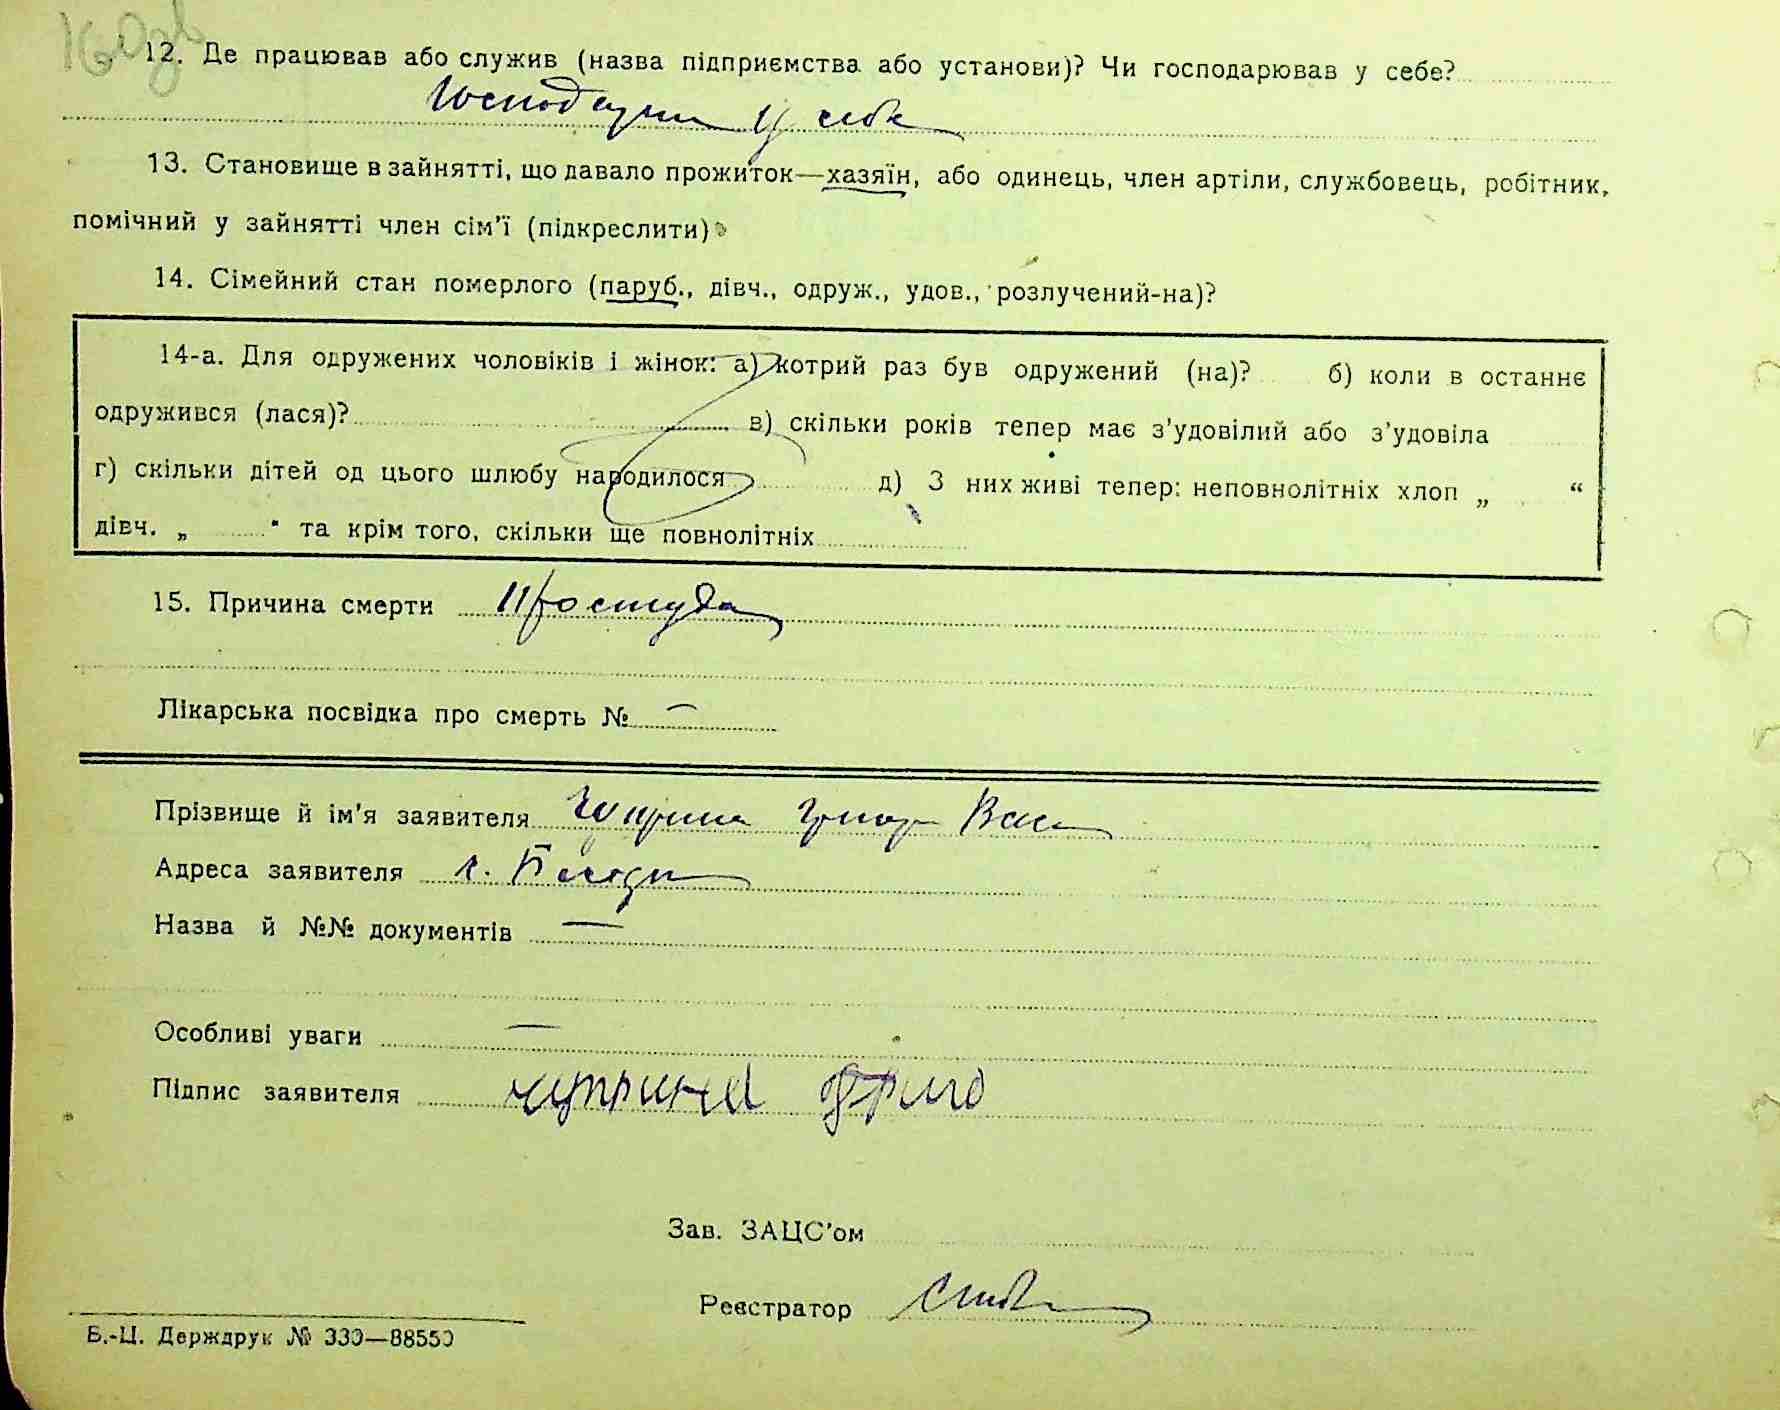 160зв
12. Де працював або служив (назва підприємства або установи)? Чи господарював у себе?
у себе
13. Становище в зайнятті, що давало прожиток—хазяїн, або одинець, член артіли, службовець, робітник,
помічний у зайнятті член сім'ї (підкреслити)
14. Сімейний стан померлого (паруб., дівч., одруж., удов., розлучений-на)?
14-а. Для одружених чоловіків і жінок: а) котрий раз був одружений (на)? б) коли в останнє
одружився (лася)? в) скільки років тепер має з'удовілий або з'удовіла
г) скільки дітей од цього шлюбу народилося д) З них живі тепер: неповнолітніх хлоп „ “
дівч. „ “ та крім того, скільки ще повнолітніх
15. Причина смерти Простуда
Лікарська посвідка про смерть № —
Прізвище й ім'я заявителя Чуприна Григор Вас
Адреса заявителя с.
Назва й №№ документів —
Особливі уваги —
Підпис заявителя чуприна
Зав. ЗАЦС'ом
Реєстратор
Б.-Ц. Держдрук № 330—88550